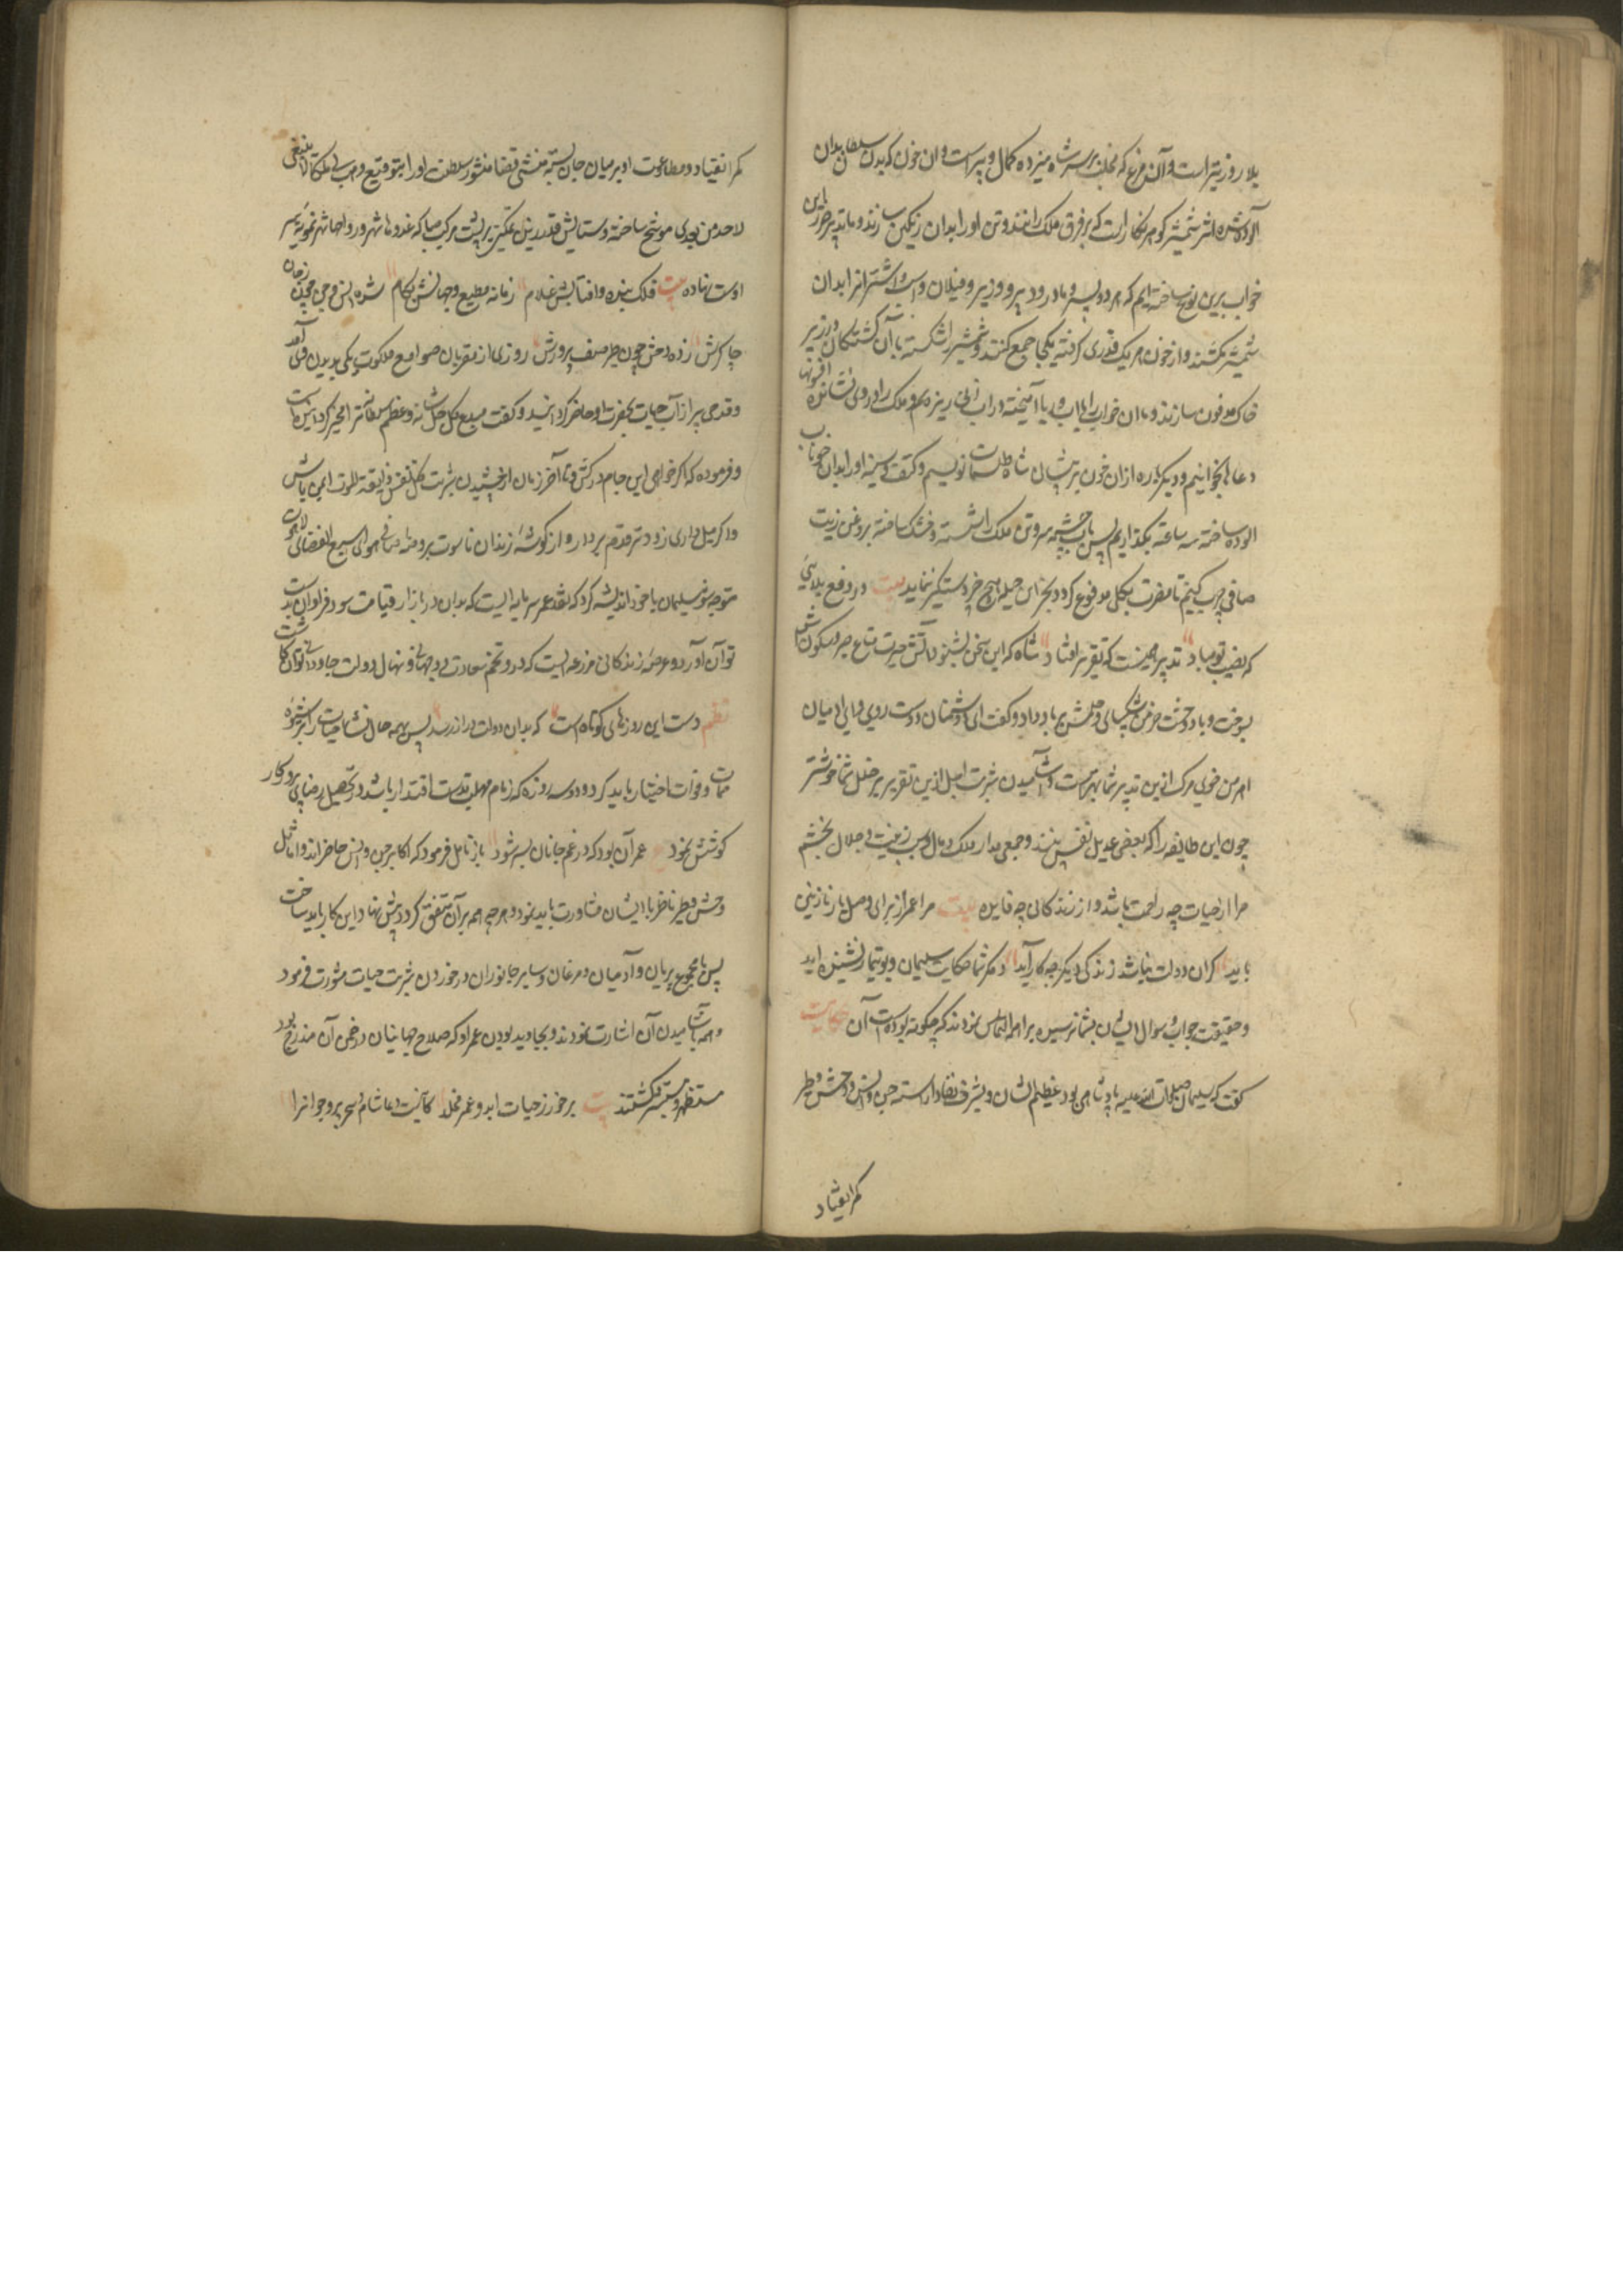 بلا روزیتر است و آن مرغ که مخلب بر سر شاه میزده کمال وزیر است و ان خون که بدن سلطان بدان
آلوده شده اثر شمشیر کوهر نکار است که بر فرق ملک رانند و تن او را بدان رنکین سازند و ما تدبیر این
خواب برین نوع ساخته‌ایم که هر دو پسر و مادر و دبیر و وزیر و فیلان و اسب و اشتر را بدان
شمشیر بکشند و از خون هر یک قدری کرفته یکجا جمع کنند و شمشیر را شکسته با آن کشتکان در زیر
خاک مدفون سازند و ما ان خون را با اب و دریا آمیخته در اب زنی ریزیم و ملک را در وی نشانده
دعاها بخوانیم و دیکر باره ازان خون بر پیشانی شاه طلسمات نویسیم و کتف و سینه او را بدان خوناب
الوده ساخته سه ساعت بکذاریم پس باب چشمه سر و تن ملک را شسته و خشک ساخته بروغن زیت
صافی چرب کنیم تا مضرت بکلی مدفوع کردد و بجز این حیله هیچ چیز دستکیر ننماید بیت در دفع بلایی
که نصیب تو مباد تدبیر همینست که تقریر افتاد شاه که این سخن بشنود آتش حیرت متاع صبر و سکونش
بسوخت و باد دهشت خرمن شکیبائی و حلمش بر باد داد و کفت ای دشمنان دوست روی و ای ادمیان
اهرمن خوی مرک ازین تدبیر شما بهترست و آشامیدن شربت اجل ازین تقریر پر خلل شما خوشتر
چون این طایفه را که بعضی عدیل نفس منند و جمعی مدار ملک و مال و سبب زینت و جلال بکشم
مرا از حیات چه راحت باشد و از زندکانی چه فایده بیت مرا عمر از برای وصل یار نازنین
باید کر ان دولت نباشد زندکی دیکر چه کار آید و مکر شما حکایت سلیمان و بوتیمار نشنیده اید
و حقیقت جواب و سوال ایشان بشما نرسیده براهمه التماس نمودند که چکونه بوده است آن حکایت
کفت که سلیمان صلوات الله علیه پادشاهی بود عظیم الشان و بشرف نفاذ اراسته جن و انس و وحش و طیر
کمر انقیاد
کمر انقیاد و مطاوعت او بر میان جان بسته منشی قضا منشور سلطنت او را بتوقیع وهب لی ملکا لا ینبغی
لاحد من بعدی موشح ساخته و ستایش قدر زین تمکین بر پشت مرکب صبا که غدوها شهر و رواحها شهر نمونه سیر
اوست نهاده بیت فلک بنده و افتابش غلام زمانه مطیع و جهانش بکام شده انس و جن محب فرمان
چاکرش زده وحش چون طیر صف بر درش روزی از مقربان صوامع ملکوت یکی بدیدن وی آمد
و قدحی پر از آب حیات بحضرت او حاضر کردانید و کفت مبدع کل جلت شانه و عظم سلطانه ترا مخیر کردانیده است
و فرموده که اکر خواهی این جام درکش و تا آخر زمان از چشیدن شربت کل نفس ذایقة الموت ایمن باش
و اکر میل داری زودتر قدم بردار و از کوشه زندان ناسوت بروضه صافی هوای وسیع الفضای لاهوت
متوجه شو سلیمان با خود اندیشه کرد که نقد عمر سرمایه‌ایست که بدان در بازار قیامت سود فراوان بدست
توان آورد و عرصه زندکانی مزرعه‌ایست که درو تخم سعادت دو جهانی و نهال دولت جاودانی توان کاشت
نظم دست این روزهای کوتاه است که بدان دولت دراز رسد پس بهمه حال نشاه حیات را بر شیوه
ممات و فوات اختیار باید کرد و دو سه روزه که زمام مهلت بدست اقتدار باشد در تحصیل رضای پروردکار
کوشش نمود عمر آن بود که در غم جانان بسر شود باز تامل فرمود که اکابر جن و انس حاضراند و اماثل
وحش و طیر ناظر با ایشان مشاورت باید نمود و هر چه همه بر آن متفق کردند پیش نهاد این کار باید ساخت
پس با مجموع پریان و آدمیان و مرغان و سایر جانوران در خوردن شربت حیات مشورت فرمود
و همه باشامیدن آن اشارت نمودند و بجاوید بودن عمر او که صلاح جهانیان در ضمن آن مندرج بود
مستظهر و مستبشر کشتند بیت برخور ز حیات ابد و عمر مخلد کآنست دعا شام و سحر پیر و جوانرا